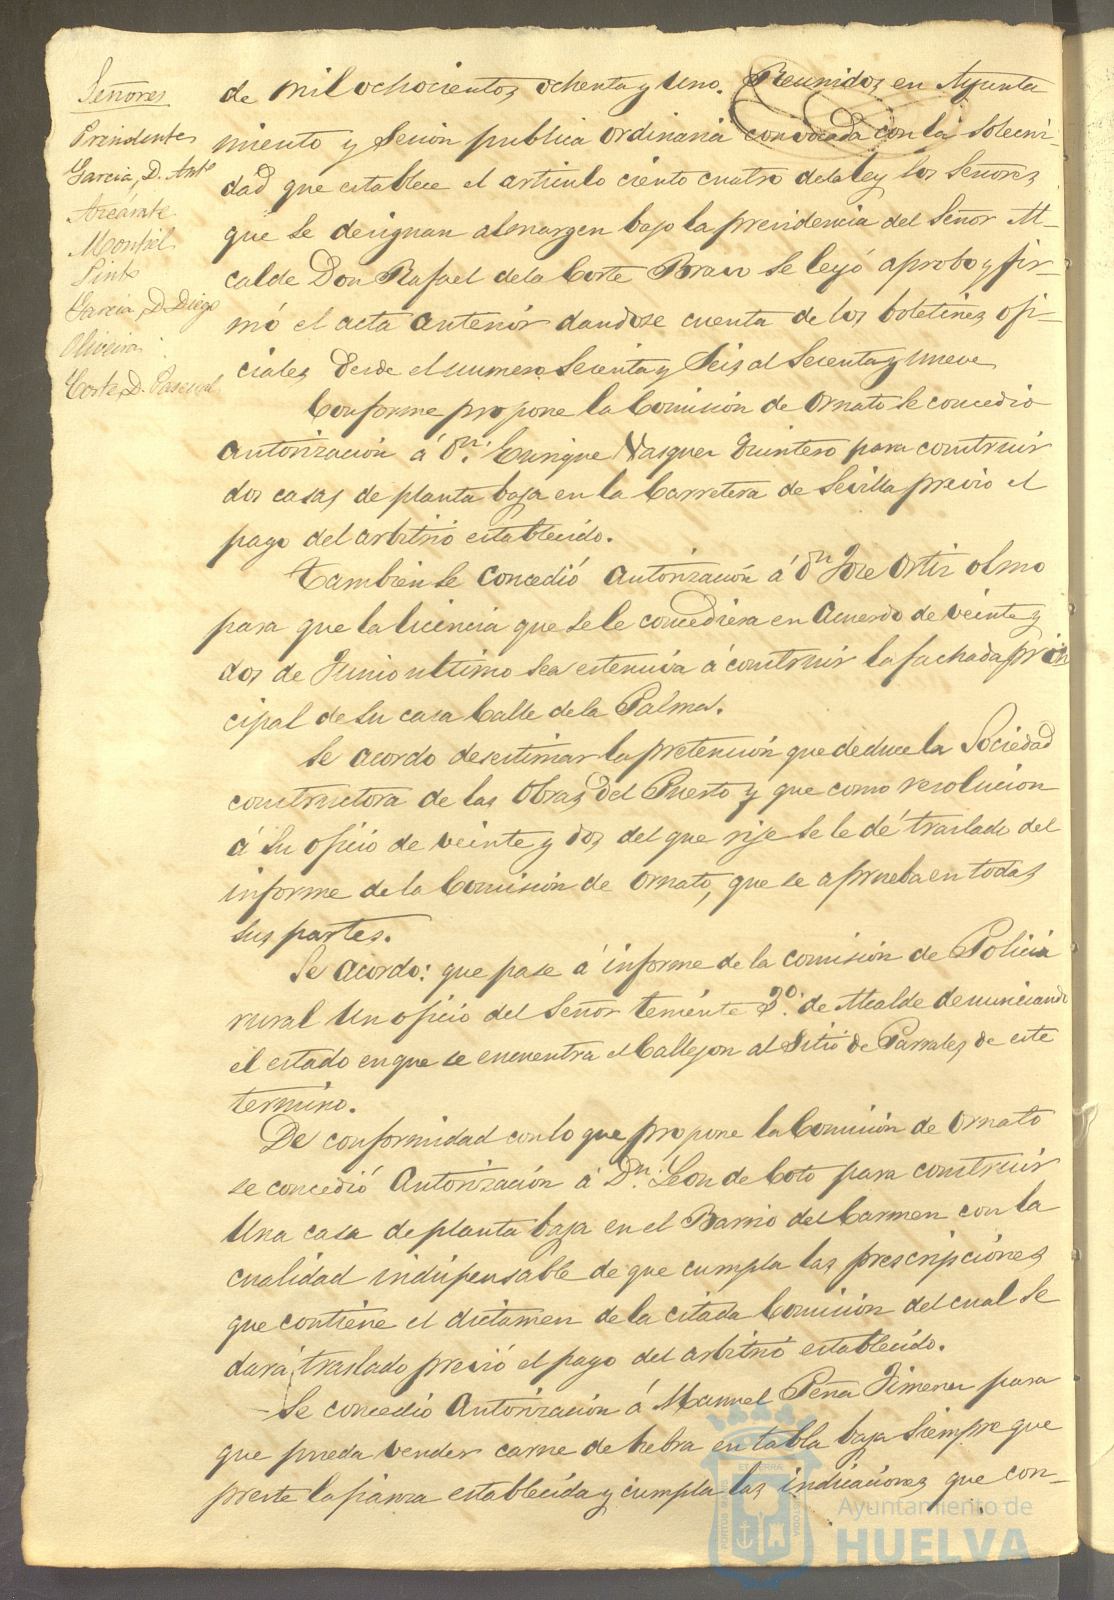 Señores
Presidente
Garcia, D. Antº
Azcárate
Montiel
Pinto
Garcia, D. Diego
Oliveira
Corte, D. Pascual
de mil ochocientos ochenta y uno. Reunidos en Ayunta
miento y Sesion publica ordinaria convocada con la solemni-
dad que establece el articulo ciento cuatro dela ley los Señores
que se designan almargen bajo la presidencia del Señor Al-
calde Don Rafael dela Corte Bravo se leyó aprobo y fir-
mó el acta anterior dandose cuenta de los boletines ofi-
ciales desde el numero Sesenta y Seis al Sesenta y nueve
Conforme propone la Comision de Ornato se concedio
autorización á Dn. Enrique Vasquez Quintero para construir
dos casas de planta baja en la Carretera de Sevilla previo el
pago del arbitrio establecido.
Tambien se concedió autorización á Dn Jose Ortiz olmo
para que la licencia que se le concediera en acuerdo de veinte y
dos de Junio ultimo sea estensiva á construir la fachada prin
cipal de su casa Calle dela Palma.
Se acordo desestimar la pretensión que deduce la Sociedad
constructora de las Obras del Puerto y que como resolucion
á su oficio de veinte y dos del que rije se le dé traslado del
informe de la Comisión de ornato, que se aprueba en todas
sus partes.
Se acordo: que pase á informe de la comisión de Policia
rural un oficio del Señor teniente 3º. de Alcalde denunciando
el estado en que se encuentra el Callejon al Sitio de Parrales de este
termino.
De conformidad con lo que propone la Comisión de Ornato
se concedió autorización á Dn. Leon de Coto para construir
una casa de planta baja en el Barrio del Carmen con la
cualidad indispensable de que cumpla las prescripciones
que contiene el dictamen de la citada Comisión del cual se
dará traslado previó el pago del arbitrio establecido.
Se concedió autorización á Manuel Peña Jimenez para
que pueda vender carne de hebra en tabla baja siempre que
preste la fianza establecida y cumpla las indicaciones que con-
Ayuntamiento de
HUELVA